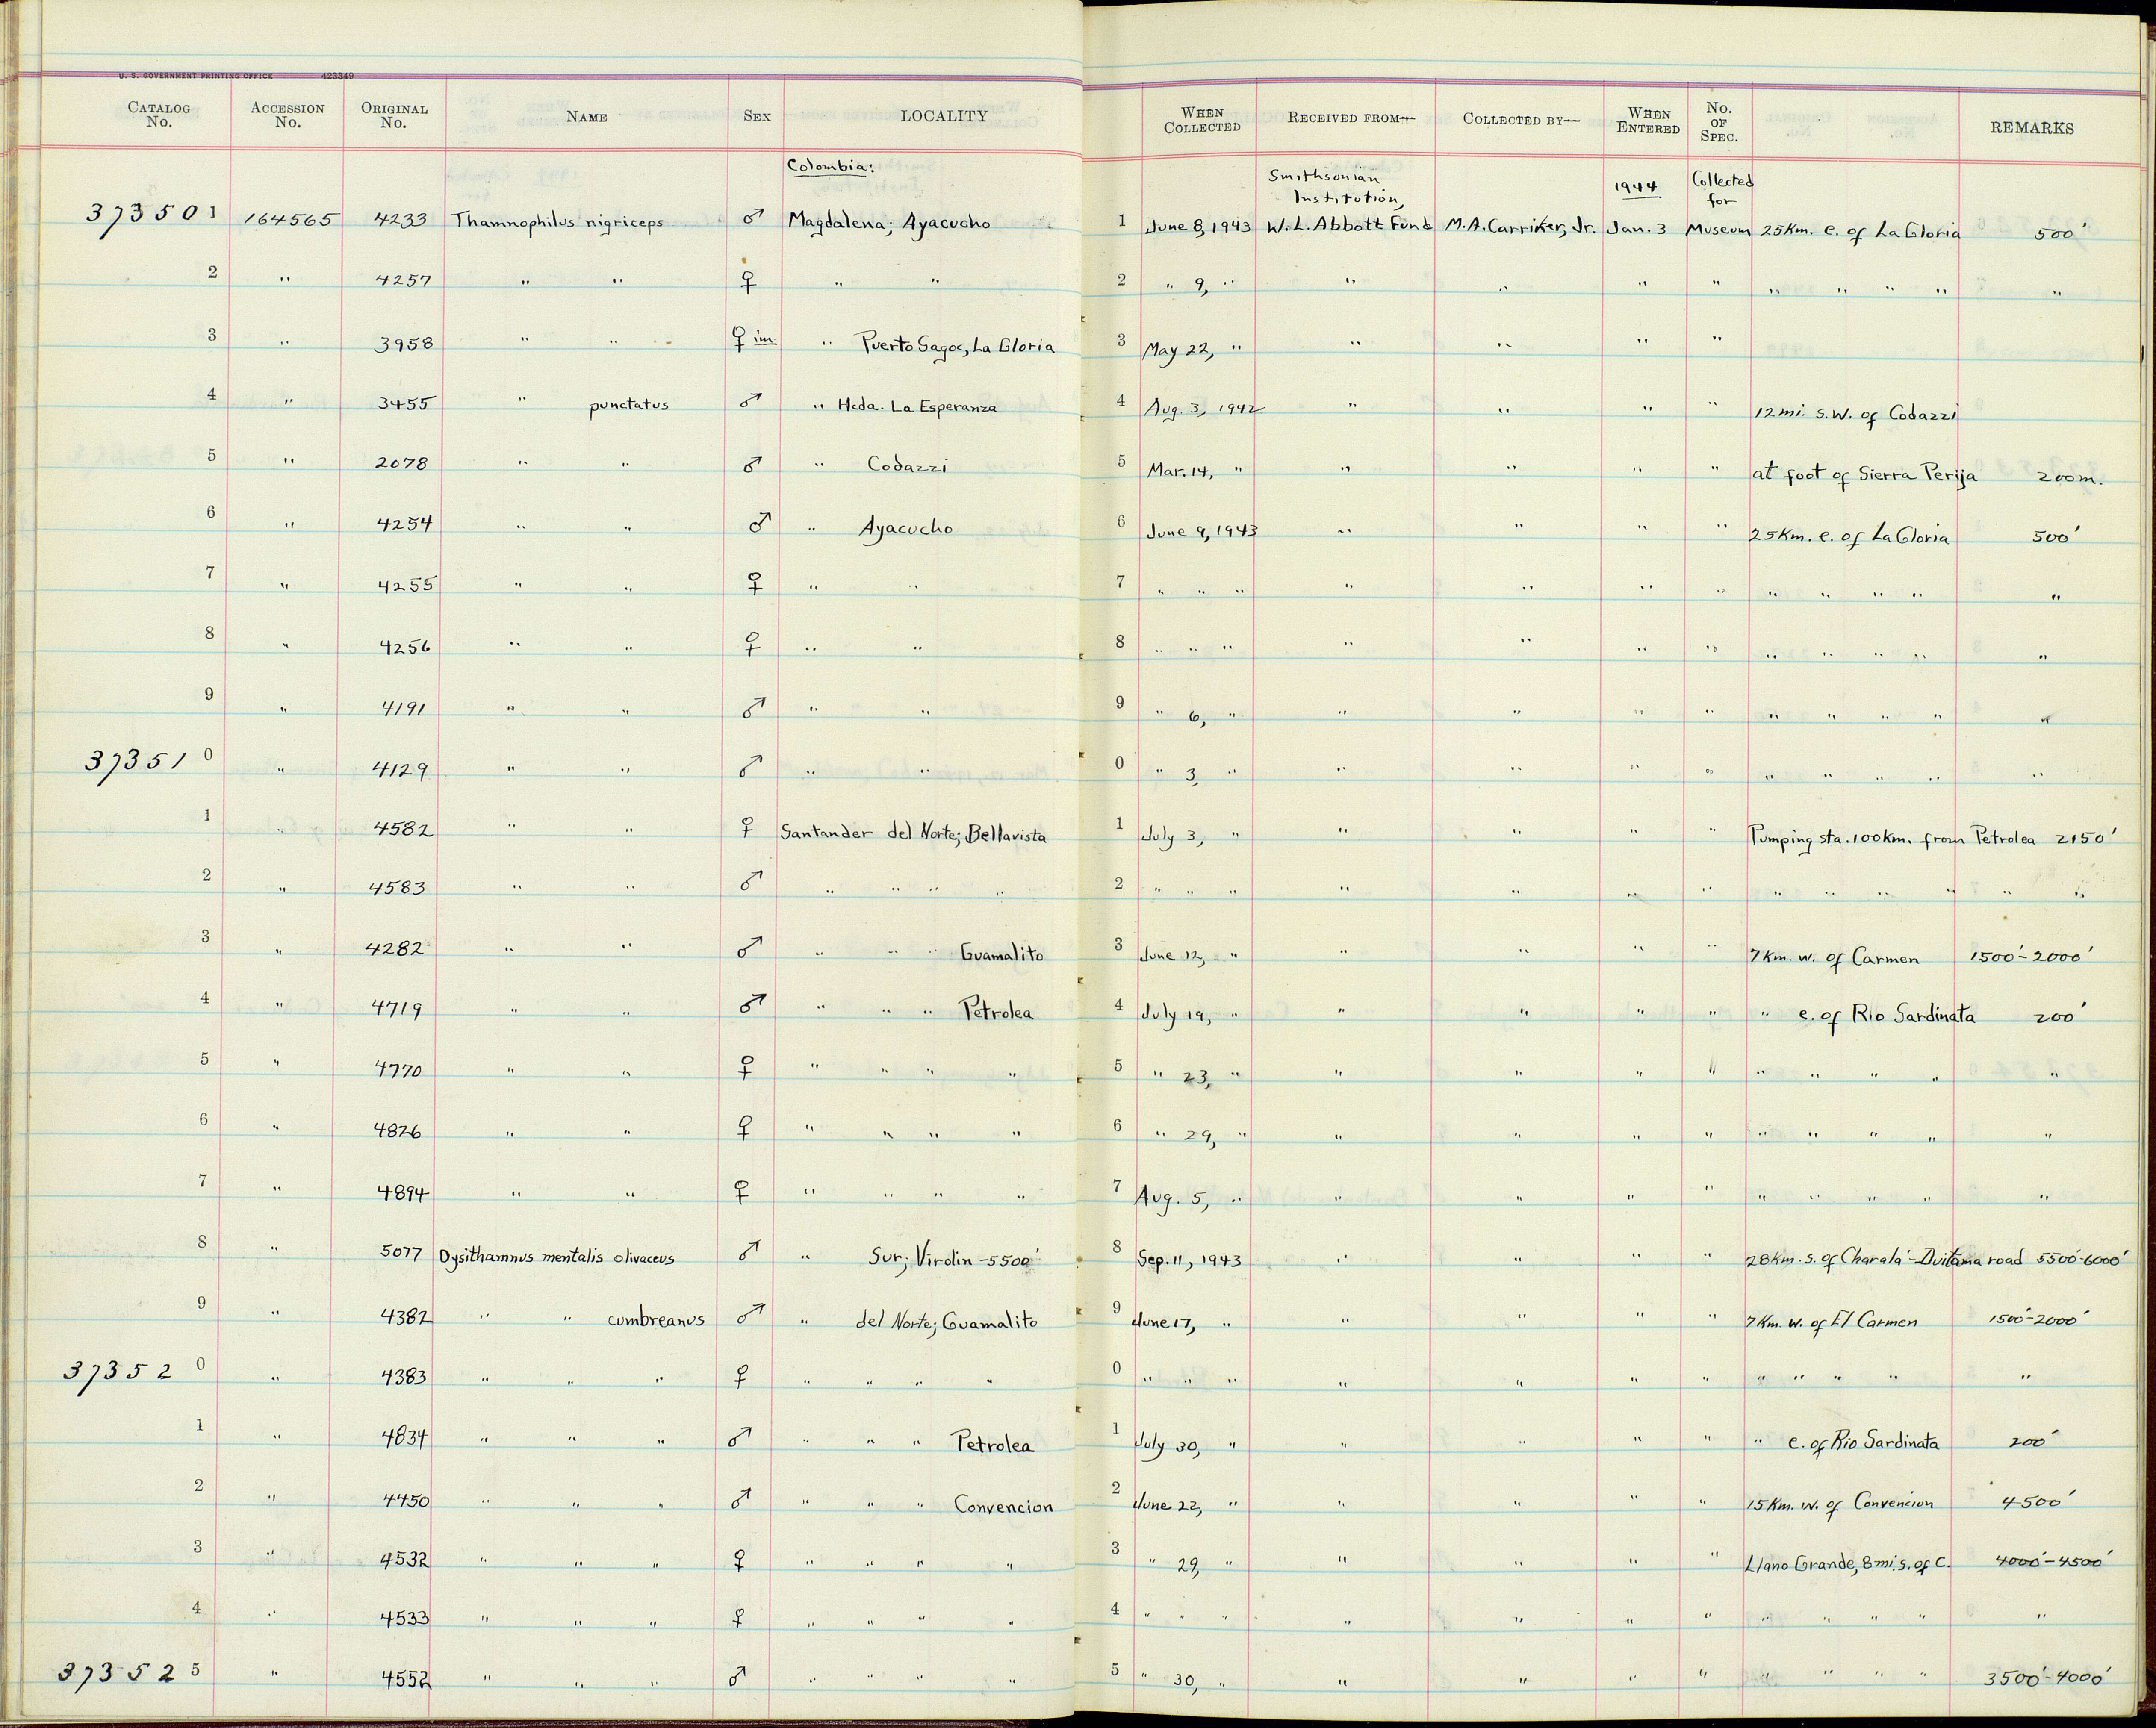 U. S. GOVERNMENT PRINTING OFFICE 423349
CATALOG No. ACCESSION No. ORIGINAL No. NAME SEX LOCALITY WHEN COLLECTED RECEIVED FROM— COLLECTED BY— WHEN ENTERED No. OF SPEC. REMARKS
Colombia:
Smithsonian Institution, 1944 Collected for
373501 164565 4233 Thamnophilus nigriceps ♂ Magdalena; Ayacucho 1 June 8, 1943 W. L. Abbott Fund M. A. Carriker, Jr. Jan. 3 Museum 25 Km. e. of La Gloria 500'
2 " 4257 " " ♀ " " 2 " 9, " " " " " " " " " "
3 " 3958 " " ♀ im. " Puerto Sagoc, La Gloria 3 May 22, " " " " "
4 " 3455 " punctatus ♂ " Hcda. La Esperanza 4 Aug. 3, 1942 " " " " 12 mi. s.w. of Codazzi
5 " 2078 " " ♂ " Codazzi 5 Mar. 14, " " " " " at foot of Sierra Perija 200 m.
6 " 4254 " " ♂ " Ayacucho 6 June 9, 1943 " " " " 25 Km. e. of La Gloria 500'
7 " 4255 " " ♀ " " 7 " " " " " " " " " " " "
8 " 4256 " " ♀ " " 8 " " " " " " " " " " " "
9 " 4191 " " ♂ " " 9 " 6, " " " " " " " " " "
373510 " 4129 " " ♂ " " 0 " 3, " " " " " " " " " "
1 " 4582 " " ♀ Santander del Norte; Bellavista 1 July 3, " " " " " Pumping sta. 100 Km. from Petrolea 2150'
2 " 4583 " " ♂ " " " " 2 " " " " " " " " " " " " "
3 " 4282 " " ♂ " " " Guamalito 3 June 12, " " " " " 7 Km. w. of Carmen 1500'-2000'
4 " 4719 " " ♂ " " " Petrolea 4 July 19, " " " " " " e. of Rio Sardinata 200'
5 " 4770 " " ♀ " " " " 5 " 23, " " " " " " " " " "
6 " 4826 " " ♀ " " " " 6 " 29, " " " " " " " " " "
7 " 4894 " " ♀ " " " " 7 Aug. 5, " " " " " " " " " "
8 " 5077 Dysithamnus mentalis olivaceus ♂ " Sur; Virolin -5500' 8 Sep. 11, 1943 " " " " 28 Km. s. of Charalá-Duitama road 5500'-6000'
9 " 4382 " " cumbreanus ♂ " del Norte; Guamalito 9 June 17, " " " " " 7 Km. w. of El Carmen 1500'-2000'
373520 " 4383 " " " ♀ " " " " 0 " " " " " " " " " " " "
1 " 4834 " " " ♂ " " " Petrolea 1 July 30, " " " " " " e. of Rio Sardinata 200'
2 " 4450 " " " ♂ " " " Convencion 2 June 22, " " " " " 15 Km. w. of Convencion 4500'
3 " 4532 " " " ♀ " " " " 3 " 29, " " " " " Llano Grande, 8 mi. s. of C. 4000'-4500'
4 " 4533 " " " ♀ " " " " 4 " " " " " " " " " " " "
373525 " 4552 " " " ♂ " " " " 5 " 30, " " " " " " " " " 3500'-4000'